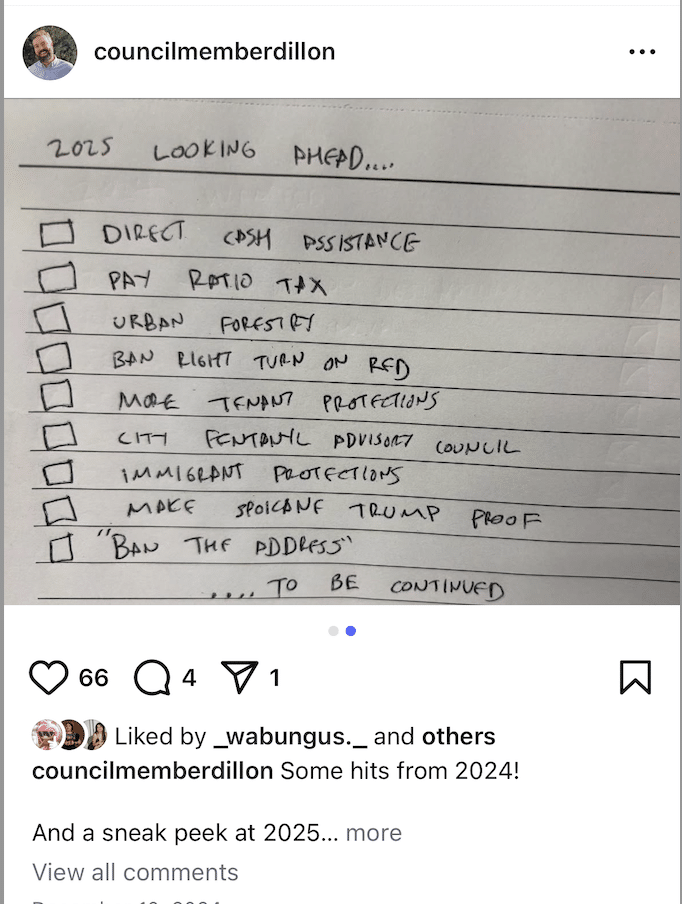 councilmemberdillon
2025 LOOKING AHEAD....
DIRECT CASH ASSISTANCE
PAY RATIO TAX
URBAN FORESTRY
BAN RIGHT TURN ON RED
MORE TENANT PROTECTIONS
CITY FENTANYL ADVISORY COUNCIL
IMMIGRANT PROTECTIONS
MAKE SPOKANE TRUMP PROOF
"BAN THE ADDRESS"
.... TO BE CONTINUED
66 4 1
Liked by _wabungus._ and others
councilmemberdillon Some hits from 2024!
And a sneak peek at 2025... more
View all comments